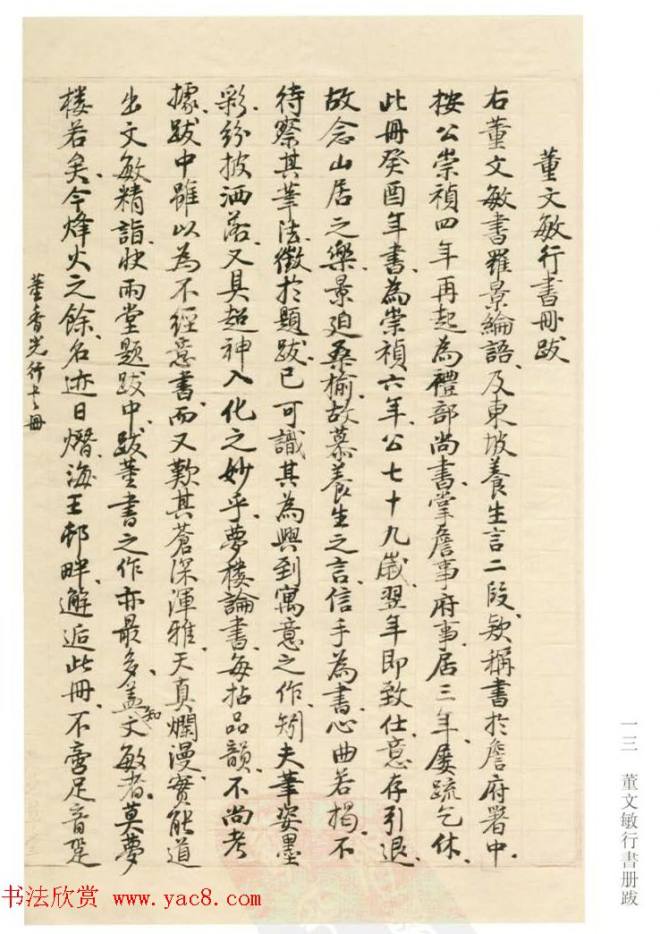 董文敏行書冊跋
右董文敏書羅景綸語及東坡養生言二段欵稱書於詹府署中
按公崇禎四年再起為禮部尚書掌詹事府事居三年屢疏乞休
此冊癸酉年書為崇禎六年公七十九歲翌年即致仕意存引退
故念山居之樂景迫桑榆故慕養生之言信手為書心曲若揭不
待察其筆法徵於題跋已可識其為興到寓意之作矧夫筆姿墨
彩紛披洒落又具超神入化之妙乎夢樓論書每拈品韻不尚考
據跋中雖以為不經意書而又歎其蒼深渾雅天真爛漫實能道
出文敏精詣快雨堂題跋中跋董書之作亦最多蓋知文敏者莫夢
楼若矣今烽火之餘名迹日熸海王邨畔邂逅此冊不啻足音跫
董香光行書冊
一三 董文敏行書册跋
书法欣赏 www.yac8.com